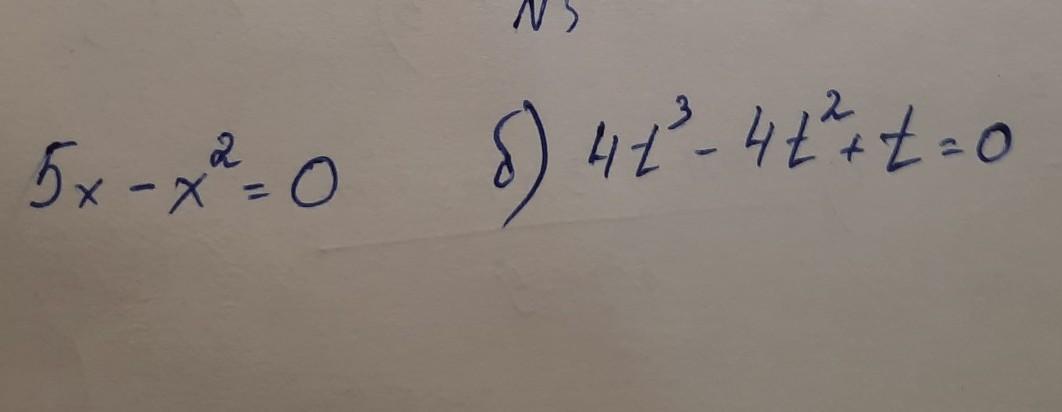 N3
5x - x² = 0 б) 4t³ - 4t² + t = 0